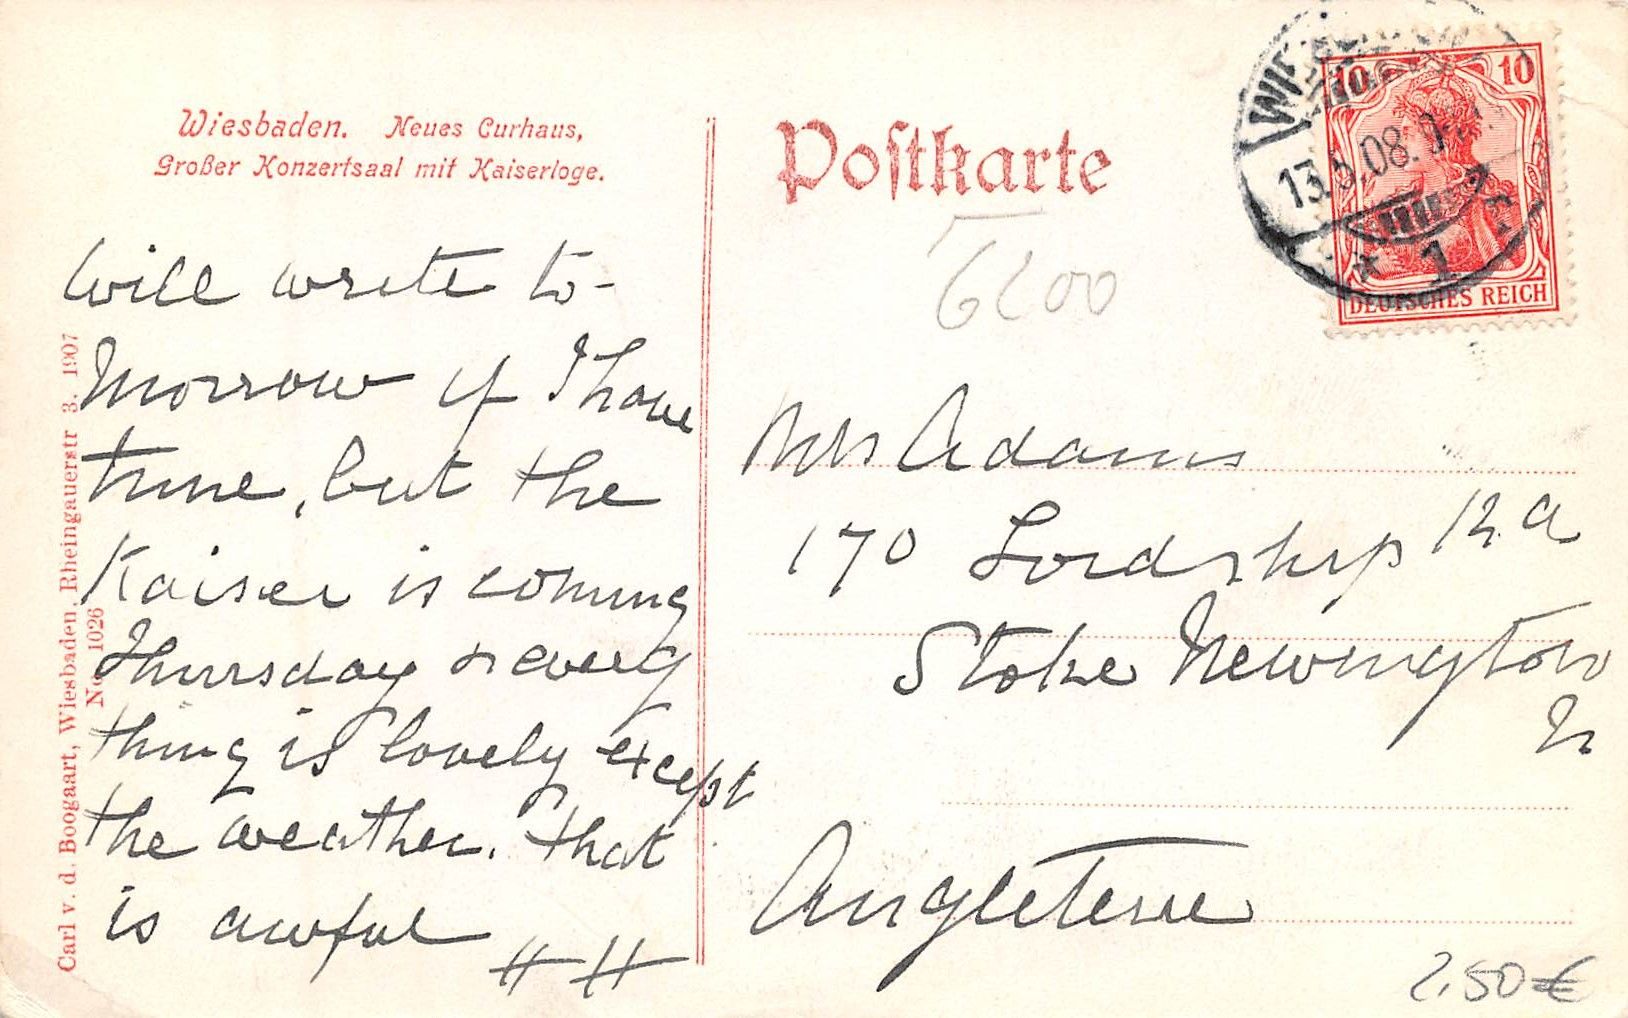 Wiesbaden. Neues Curhaus,
Großer Konzertsaal mit Kaiserloge.
Postkarte
10 10
DEUTSCHES REICH
13.5.08.9
* 1
6200
will write to-
morrow if I have
time, but the
Kaiser is coming
Thursday & every
thing is lovely except
the weather. that
is awful
HH
Mrs Adams
170 Lordship
Stoke Newington
N
Angleterre
2,50 €
Carl v. d. Boogaart, Wiesbaden, Rheingauerstr 3. 1907
No. 1026